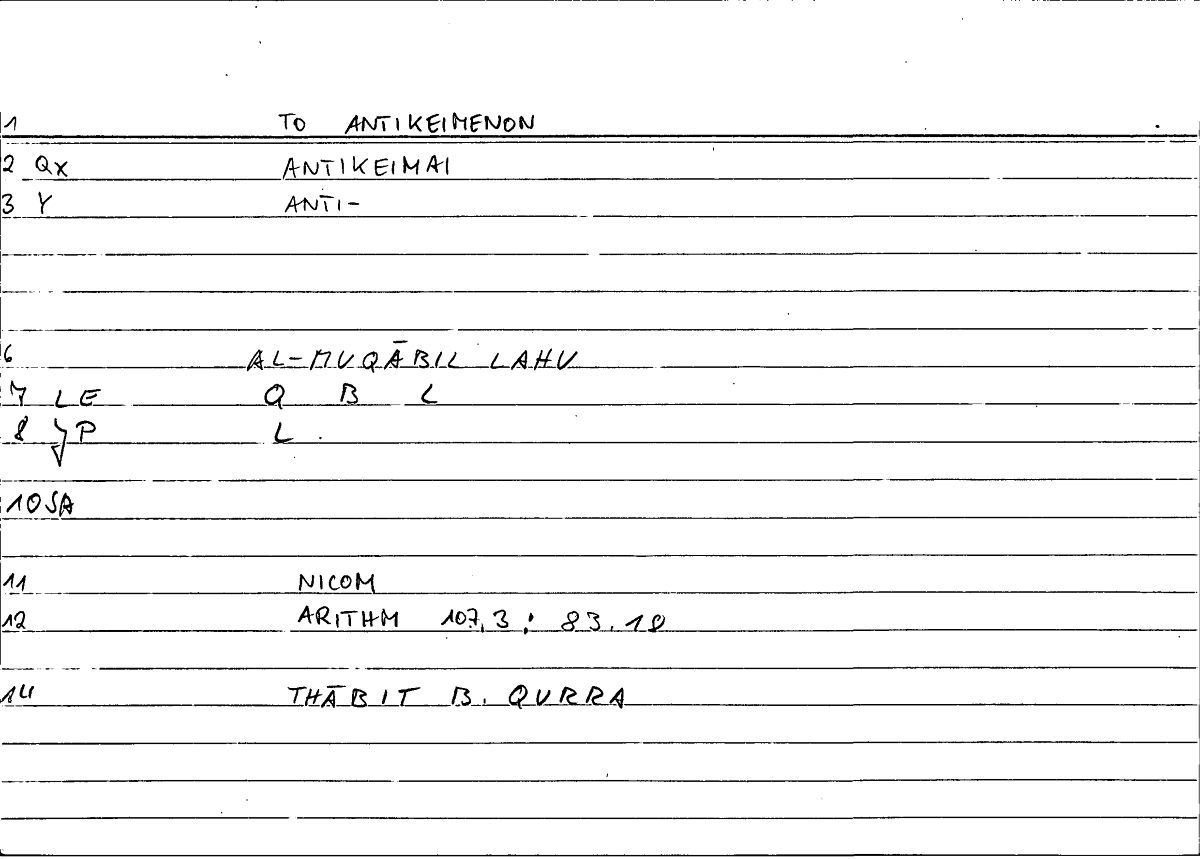 1 TO ANTIKEIMENON
2 Qx ANTIKEIMAI
3 Y ANTI-
6 AL-MUQĀBIL LAHU
7 LE Q B L
8 P L
10 SA
11 NICOM
12 ARITHM 107,3 : 83.18
14 THĀBIT B. QURRA